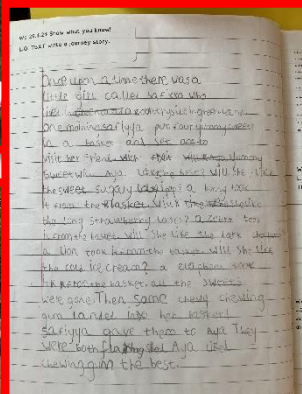 We 25.9.24 Show what you know!
L.O. To write a journey story.
Once upon a time there was a
little girl called Safiyya who
one morning safiyya put four yummy sweets
in a basket and set off to
visit her friend
sweet will Aya will she like
the sweet sugary a took
it from the basket. Will she like
the long strawberry laces? a zebra took
it from the basket. Will she like the dark
a lion took it from the basket. Will she like
the cold ice cream? a elephant took
it from the basket. all the sweets
were gone. Then some chewy chewing
gum landed into her basket!
Safiyya gave them to Aya. They
were both Aya liked
chewing gum the best.